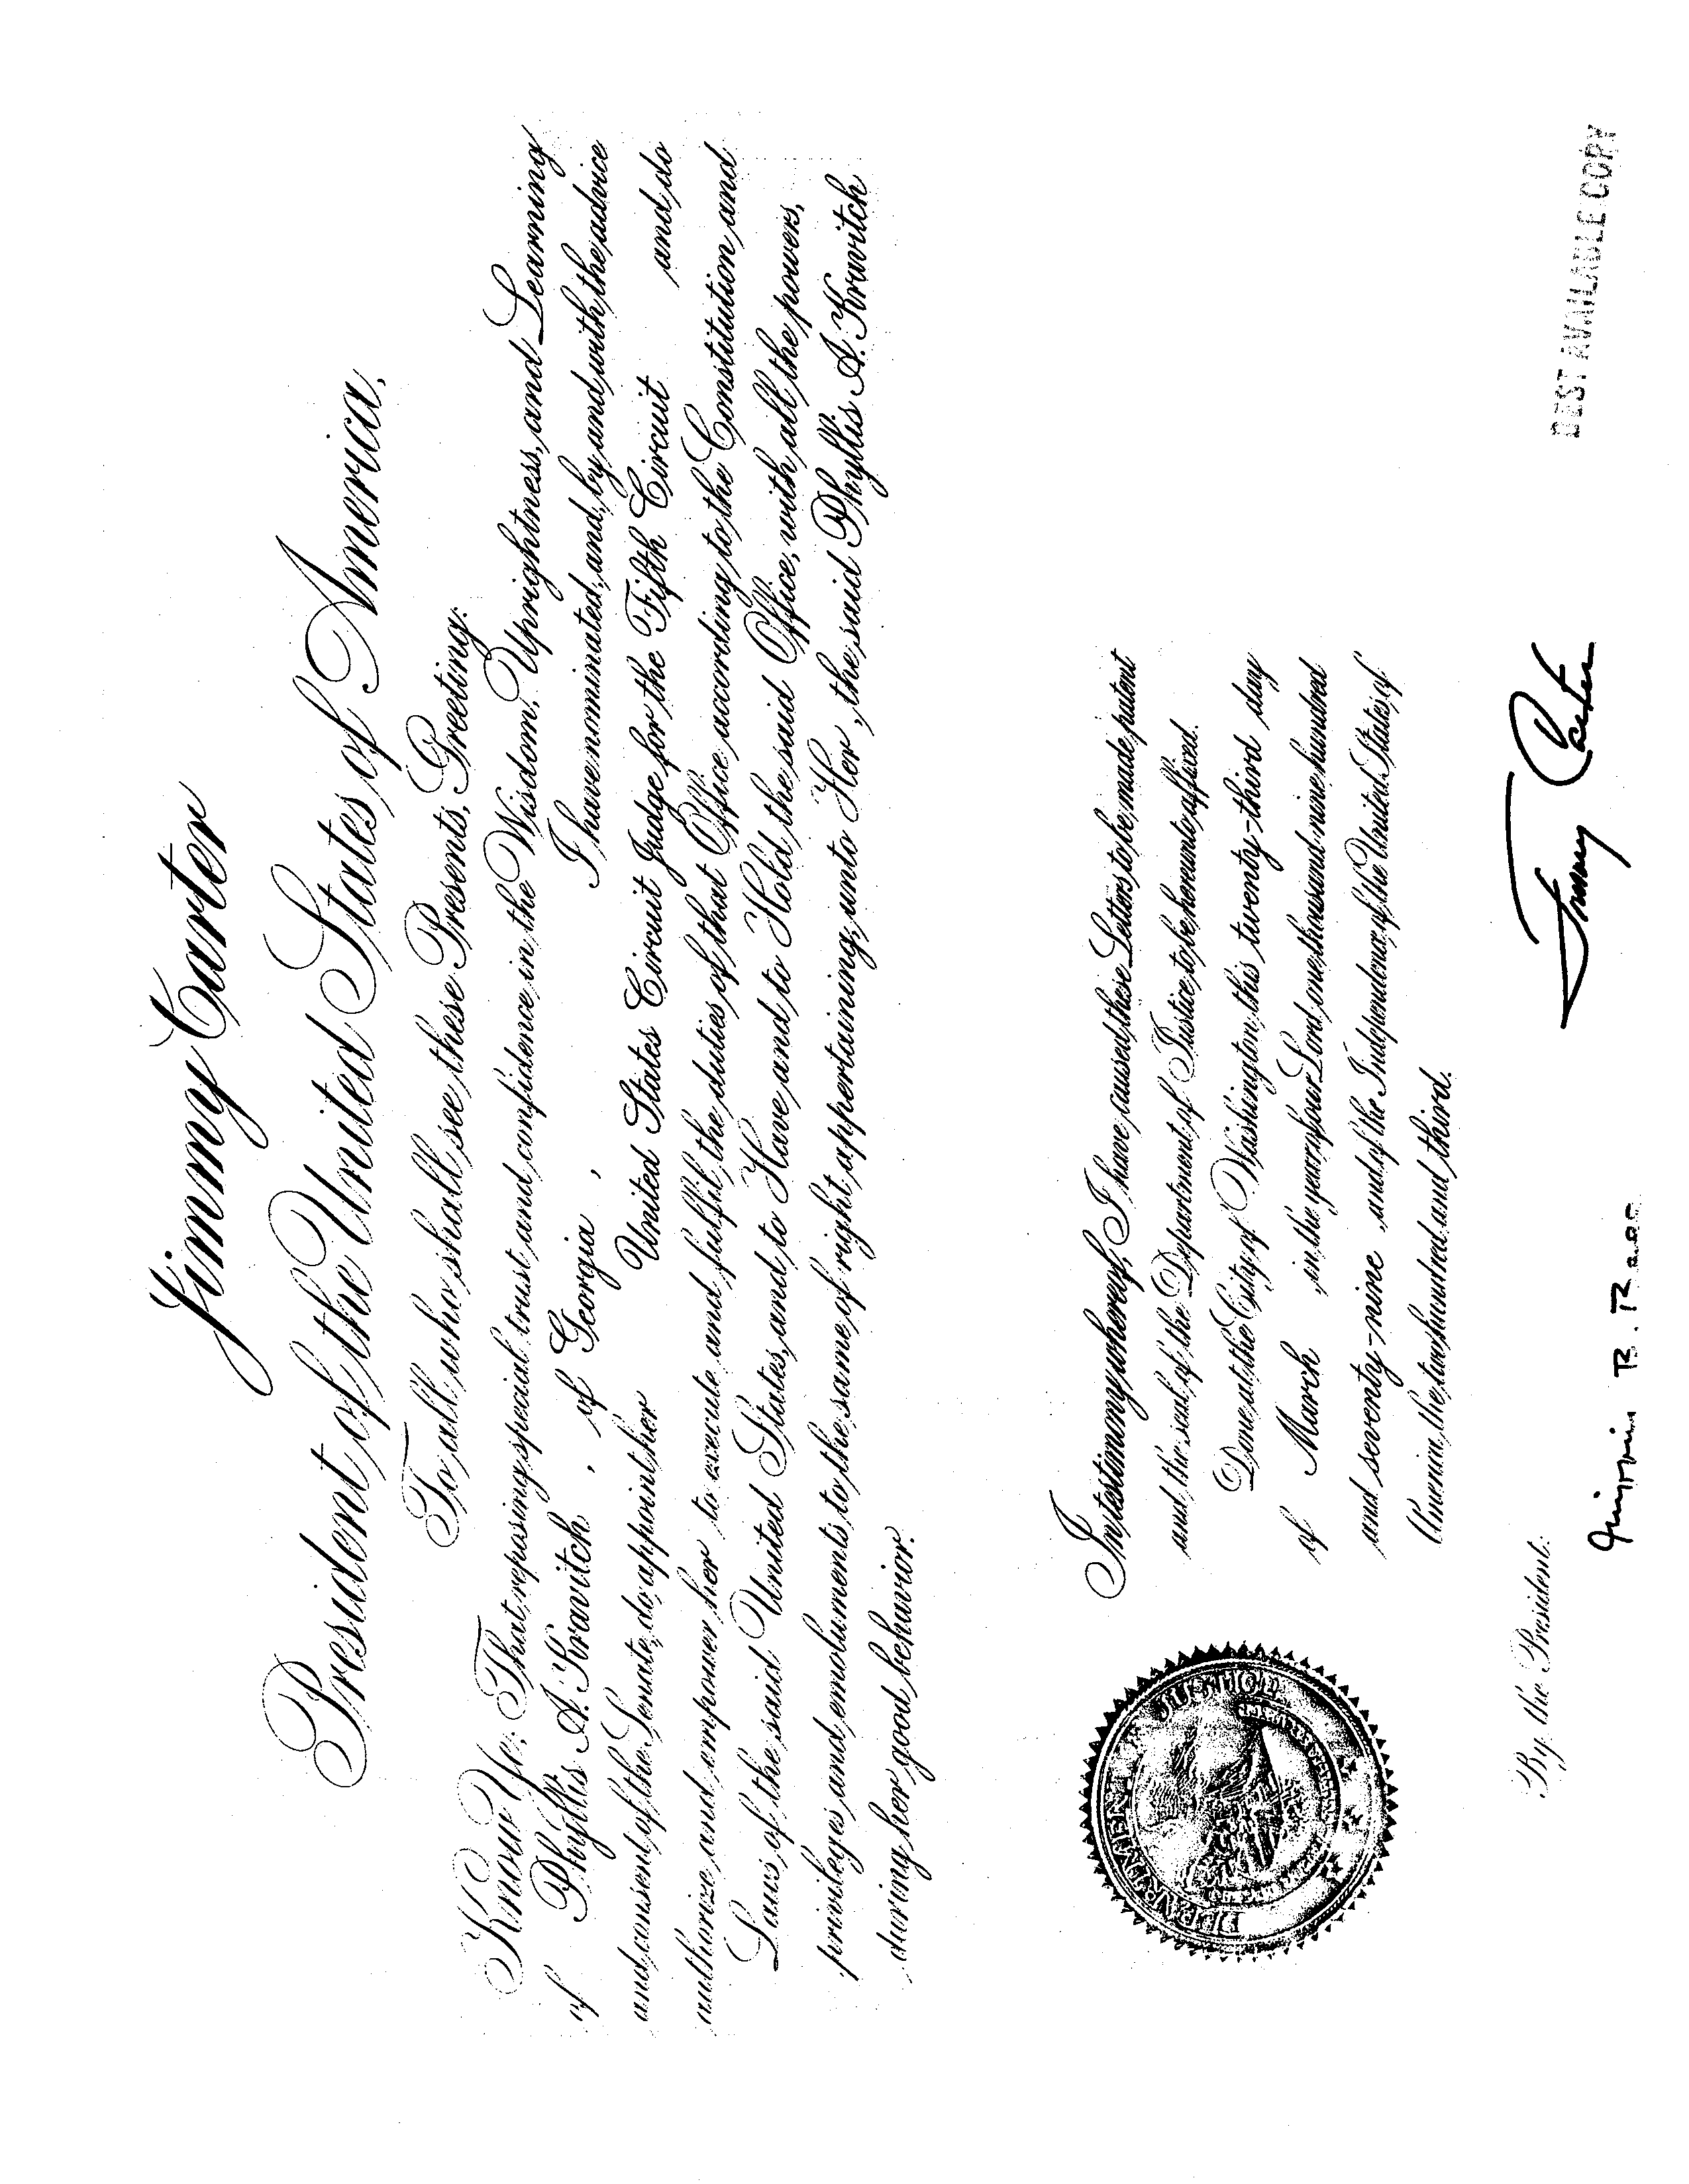 Jimmy Carter
President of the United States of America,
To all who shall see these Presents, Greeting:
Know Ye; That reposing special trust and confidence in the Wisdom, Uprightness, and Learning
of Phyllis A. Kravitch, of Georgia, I have nominated, and, by and with the advice
and consent of the Senate, do appoint her United States Circuit Judge for the Fifth Circuit and do
authorize and empower her to execute and fulfil the duties of that Office according to the Constitution and
Laws of the said United States, and to Have and to Hold the said Office, with all the powers,
privileges and emoluments to the same of right appertaining, unto Her, the said Phyllis A. Kravitch
during her good behavior.
In testimony whereof, I have caused these Letters to be made patent
and the seal of the Department of Justice to be hereunto affixed.
Done at the City of Washington, this twenty-third day
of March in the year of our Lord one thousand nine hundred
and seventy-nine, and of the Independence of the United States of
America, the two hundred and third.
DEPARTMENT JUSTICE
Jimmy Carter
By the President:
BEST AVAILABLE COPY